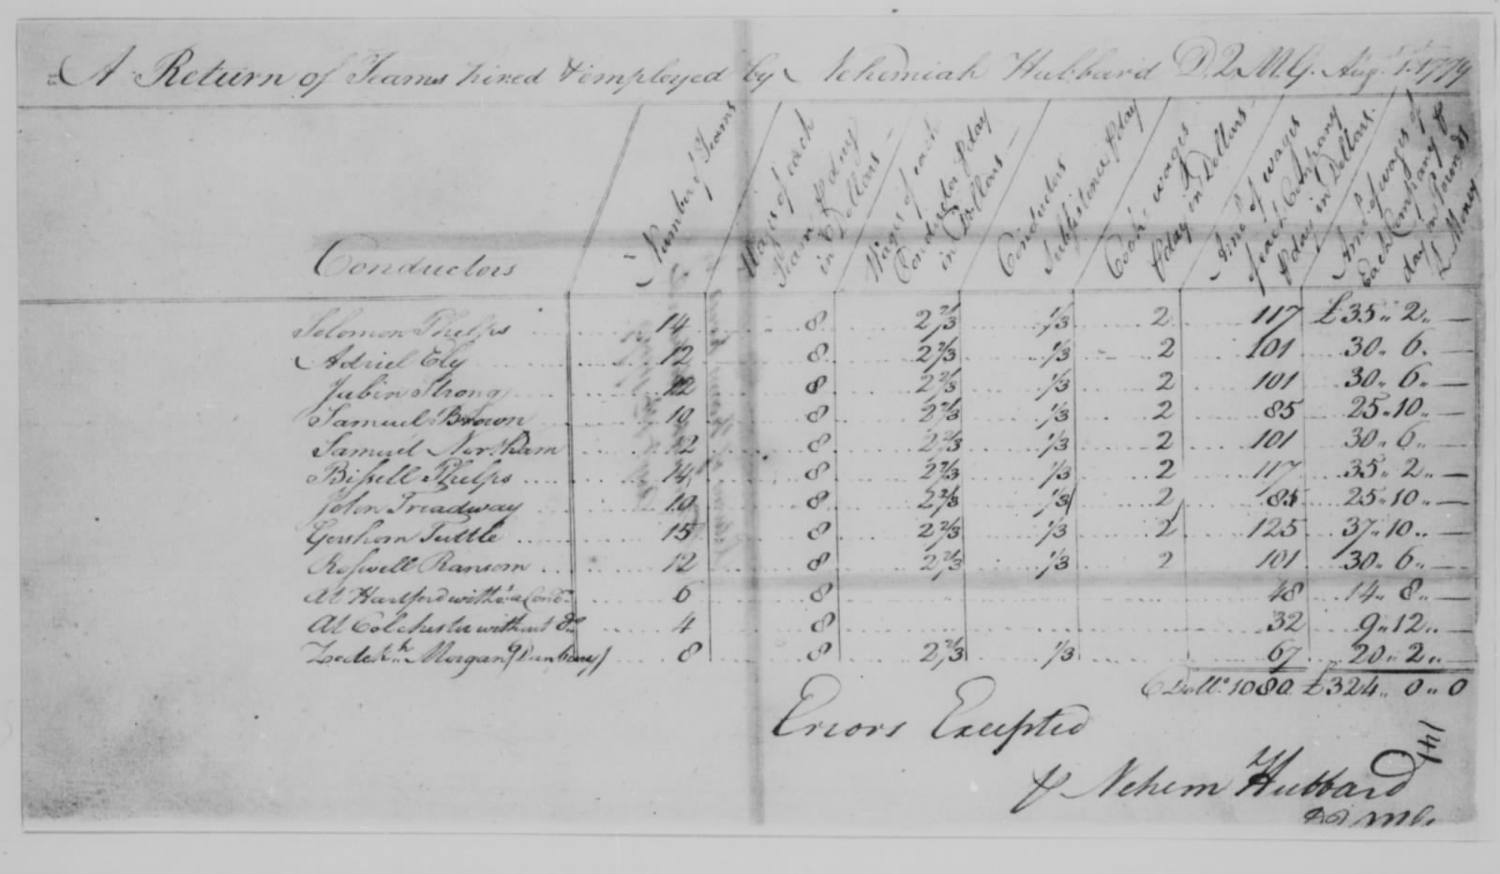 A Return of Teams hired & employed by Nehemiah Hubbard D.Q.M.G. Augt 1st 1779
Conductors
Number of Teams
Wages of each Team pr day in Dollars
Wages of each Conductor pr day in Dollars
Conductors Subsistence pr day
Cooks wages pr day in Dollars
Amot of wages of each Company pr day in Dollars
Amot of wages of Each Company pr day in Pounds L Money
Solomon Phelps 14 8 2 2/3 1/3 2 117 £35 .. 2 .. —
Adriel Ely 12 8 2 2/3 1/3 2 101 30 .. 6 .. —
Jabin Strong 12 8 2 2/3 1/3 2 101 30 .. 6 .. —
Samuel Brown 10 8 2 2/3 1/3 2 85 25 .. 10 .. —
Samuel Northam 12 8 2 2/3 1/3 2 101 30 .. 6 .. —
Bissell Phelps 14 8 2 2/3 1/3 2 117 35 .. 2 .. —
John Treadway 10 8 2 2/3 1/3 2 85 25 .. 10 .. —
Gershom Tuttle 15 8 2 2/3 1/3 2 125 37 .. 10 .. —
Roswell Ransom 12 8 2 2/3 1/3 2 101 30 .. 6 .. —
At Hartford witht a Condr 6 8 48 14 .. 8 .. —
At Colchester without do 4 8 32 9 .. 12 .. —
Morgan (Danbury) 8 8 2 2/3 1/3 67 20 .. 2 .. —
Dolls 1080 £324 .. 0 .. 0
Errors Excepted
pr Nehem Hubbard
DQMG
141